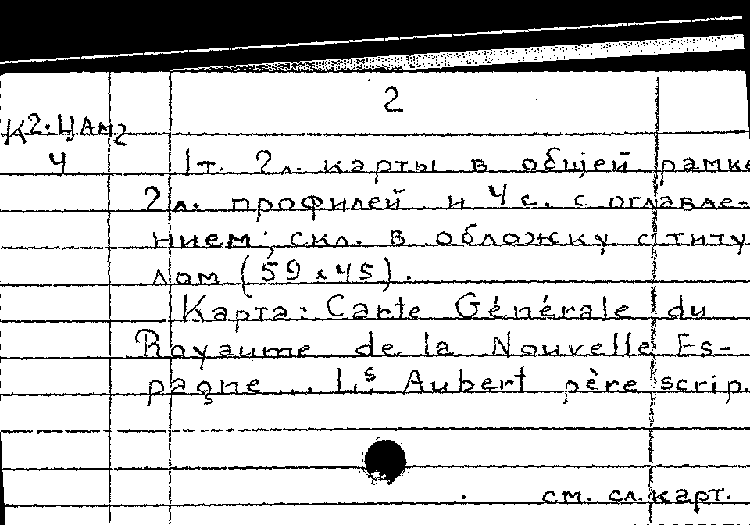 2
К2.ЦАм2
4
1т. 2л. карты в общей рамке
2л. профилей и 4с. с оглавле-
нием; скл. в обложку с титу
лом (59х45).
Карта: Carte Générale du
Royaume de la Nouvelle Es-
pagne... L.s Aubert père scrip.
см. сл. карт.